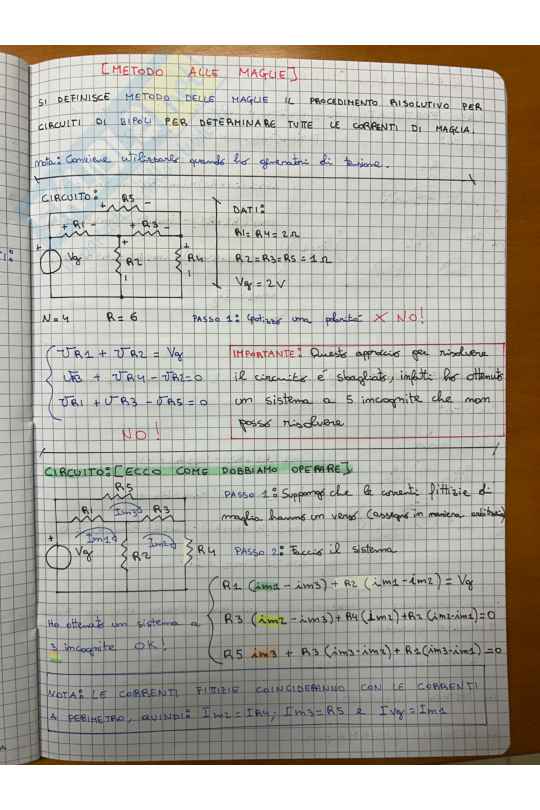 [METODO ALLE MAGLIE]
SI DEFINISCE METODO DELLE MAGLIE IL PROCEDIMENTO RISOLUTIVO PER
CIRCUITI DI BIPOLI PER DETERMINARE TUTTE LE CORRENTI DI MAGLIA.
nota: Conviene utilizzarlo quando ho generatori di tensione.
CIRCUITO:
+ R5 -
+ R1 - + R3 -
+ Vg
+ R2
+ R4
DATI:
R1=R4=2Ω
R2=R3=R5=1Ω
Vg=2V
N=4 R=6
PASSO 1: Ipotizzo una polarità X NO!
VR1 + VR2 = Vg
VR3 + VR4 - VR2=0
VR1 + VR3 - VR5=0
NO!
IMPORTANTE: Questo approccio per risolvere
il circuito è sbagliato, infatti ho ottenuto
un sistema a 5 incognite che non
posso risolvere
CIRCUITO: [ECCO COME DOBBIAMO OPERARE]
R5
R1 Im3 R3
Im1 Im2
+ Vg R2 R4
PASSO 1: Suppongo che le correnti fittizie di
maglia hanno un verso. (assegno in maniera arbitraria)
PASSO 2: Faccio il sistema
R1 (im1-im3) + R2 (im1-im2) = Vg
R3 (im2-im3) + R4(im2) + R2 (im2-im1)=0
R5 im3 + R3 (im3-im2) + R1(im3-im1)=0
Ho ottenuto un sistema a
3 incognite OK!
NOTA: LE CORRENTI FITTIZIE COINCIDERANNO CON LE CORRENTI
A PERIMETRO, QUINDI: Im2=IR4; Im3=R5 e Ivg=Im1